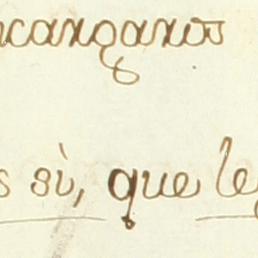 ncarganos
s sì, que le